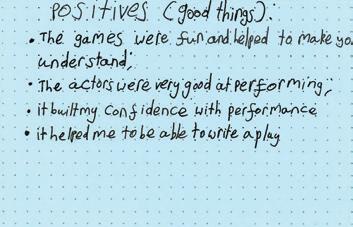 POSITIVES (good things):
• The games were fun and helped to make you
understand,
• The actors were very good at performing,
• it built my confidence with performance
• it helped me to be able to write a play